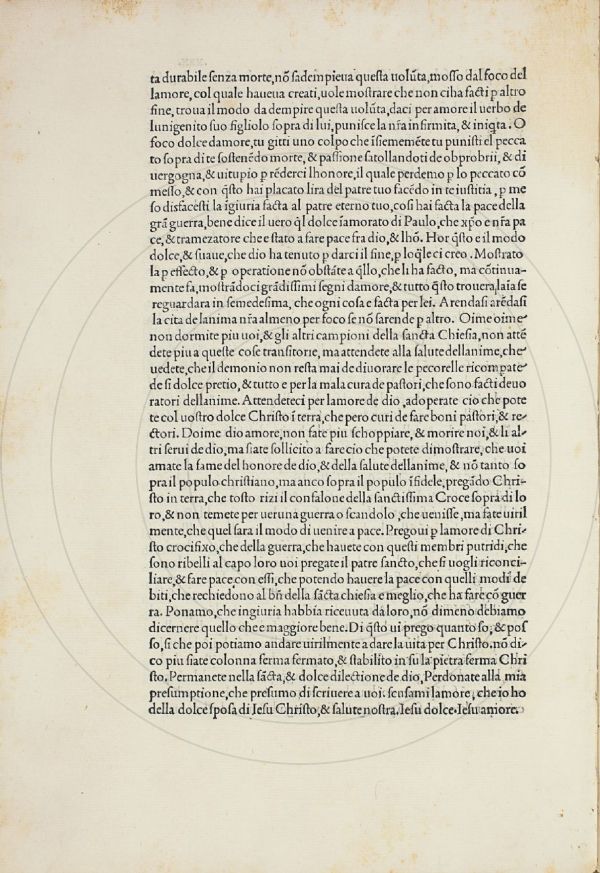 ta durabile senza morte, nõ sadempieua questa uolũta, mosso dal foco del
lamore, col quale haueua creati, uole mostrare che non ci ha facti p altro
fine, troua il modo da dempire questa uolũta, daci per amore il uerbo de
lunigenito suo figliolo sopra di lui, punisce la nr̃a infirmita, & iniqta. O
foco dolce damore, tu gitti uno colpo che ĩsiememẽte tu punisti el pecca
to sopra di te sostenẽdo morte, & passione satollandoti de obprobrii, & di
uergogna, & uitupio p rẽderci lhonore, il quale perdemo p lo peccato cõ
messo, & con q̃sto hai placato lira del patre tuo facẽdo in te iustitia, p me
so disfacesti la ĩgiuria facta al patre eterno tuo, cosi hai facta la pace della
grã guerra, bene dice il uero q̃l dolce ĩamorato di Paulo, che xp̃o e nr̃a pa
ce, & tramezatore che e stato a fare pace fra dio, & lhõ. Hor q̃sto e il modo
dolce, & suaue, che dio ha tenuto p darci il fine, p loq̃le ci creo. Mostrato
la p effecto, & p operatione nõ obstãte a q̃llo, che li ha facto, ma cõtinua-
mente fa, mostrãdoci grãdissimi segni damore, & tutto q̃sto trouera, laia se
reguardara in semedesima, che ogni cosa e facta per lei. Arendasi arẽdasi
la cita de lanima nr̃a almeno per foco se nõ sarende p altro. Oime oime
non dormite piu uoi, & gli altri campioni della sancta Chiesia, non attẽ
dete piu a queste cose transitorie, ma attendete alla salute dellanime, che
uedete, che il demonio non resta mai de diuorare le pecorelle ricompate
de si dolce pretio, & tutto e per la mala cura de pastori, che sono facti deuo
ratori dellanime. Attendeteci per lamore de dio, adoperate cio che pote
te col uostro dolce Christo ĩ terra, che pero curi de fare boni pastori, & re-
ctori. Doime dio amore, non fate piu schoppiare, & morire noi, & li al
tri serui de dio, ma siate sollicito a fare cio che potete dimostrare, che uoi
amate la fame del honore de dio, & della salute dellanime, & nõ tanto so
pra il populo christiano, ma anco sopra il populo ĩfidele, pregãdo Chri-
sto in terra, che tosto rizi il confalone della sanctissima Croce sopra di lo
ro, & non temete per ueruna guerra o scandolo, che uenisse, ma fate uiril
mente, che quel sara il modo di uenire a pace. Pregoui p lamore di Chri-
sto crocifixo, che della guerra, che hauete con questi membri putridi, che
sono ribelli al capo loro uoi pregate il patre sancto, che si uogli riconci-
liare, & fare pace con essi, che potendo hauere la pace con quelli modi de
biti, che rechiedono al bñ della sãcta chiesia e meglio, che ha fare cõ guer
ra. Ponamo, che ingiuria habbia riceuuta da loro, nõ dimeno debiamo
dicernere quello che e maggiore bene. Di q̃sto ui prego quanto so, & pos
so, si che poi potiamo andare uirilmente a dare la uita per Christo. nõ di-
co piu siate colonna ferma fermato, & stabilito in su la pietra ferma Chri
sto. Permanete nella sãcta, & dolce dilectione de dio, Perdonate alla mia
presumptione, che presumo di scriuere a uoi. sensami lamore, che io ho
della dolce sposa di Iesu Christo, & salute nostra. Iesu dolce. Iesu amore.